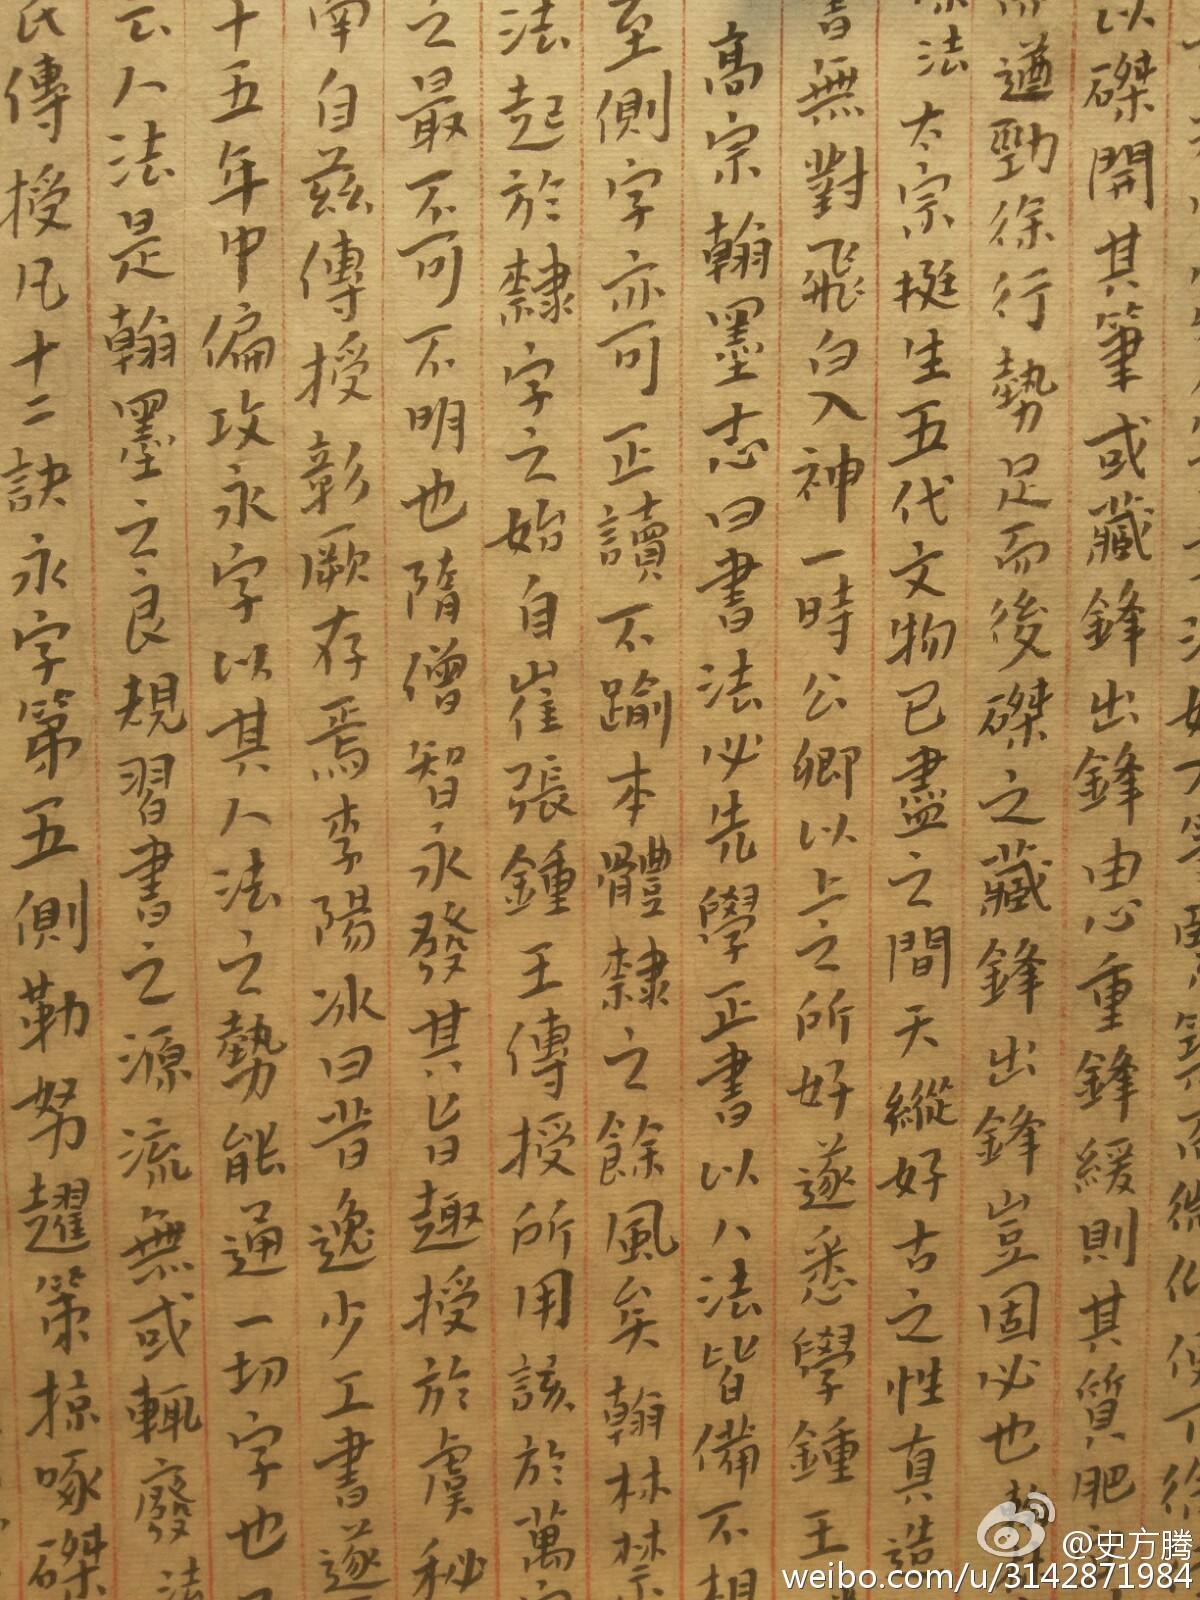 以磔開其筆或藏鋒出鋒由心重鋒緩則其質肥
遒勁徐行勢足而後磔之藏鋒出鋒豈固必也
法太宗挺生五代文物已盡之間天縱好古之性真造
書無對飛白入神一時公卿以上之所好遂悉學鍾王
高宗翰墨志曰書法必先學正書以八法皆備不相
至側字亦可正讀不踰本體隸之餘風矣翰林禁
法起於隸字之始自崔張鍾王傳授所用該於萬
之最不可不明也隋僧智永發其旨趣授於虞秘
南自茲傳授彰厥存焉李陽冰曰昔逸少工書遂
十五年中偏攻永字以其八法之勢能通一切字也
云八法是翰墨之良規習書之源流無或輒廢法
氏傳授凡十二訣永字第五側勒努趯策掠啄磔
@史方腾
weibo.com/u/3142871984